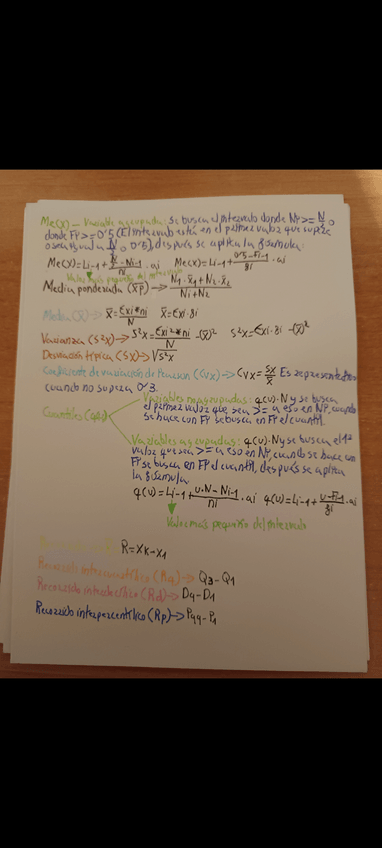 Me(X) → Variable agrupada: Se busca el intervalo donde Ni >= N/2 o
donde Fi >= 0'5 (El intervalo está en el primer valor que supera
o sea igual a N/2 o 0'5), después se aplica la fórmula:
Me(X) = Li-1 + (N/2 - Ni-1)/ni · ai   Me(X) = Li-1 + (0'5 - Fi-1)/fi · ai
Valor más pequeño del intervalo
Media ponderada (x̄p) → (N1 · x̄1 + N2 · x̄2)/(N1 + N2)
Media (x̄) → x̄ = Σxi*ni/N   x̄ = Σxi·fi
Varianza (S²x) → S²x = Σxi²*ni/N - (x̄)²   S²x = Σxi·fi - (x̄)²
Desviación típica (Sx) → √S²x
Coeficiente de variación de Pearson (CVx) → CVx = Sx/x̄ Es representativo
cuando no supera 0'3.
Variables no agrupadas: q(u)·N y se busca
el primer valor que sea >= a eso en Ni, cuando
se hace con Fi se busca en Fi el cuantil.
Cuantiles
Variables agrupadas: q(u)·N y se busca el 1º
valor que sea >= a eso en Ni, cuando se hace con
Fi se busca en Fi el cuantil, después se aplica
la fórmula:
q(u) = Li-1 + (u·N - Ni-1)/ni · ai   q(u) = Li-1 + (u - Fi-1)/fi · ai
Valor más pequeño del intervalo
R = Xk - X1
Recorrido intercuartílico (RQ) → Q3 - Q1
Recorrido interdecílico (Rd) → D9 - D1
Recorrido interpercentílico (Rp) → P99 - P1